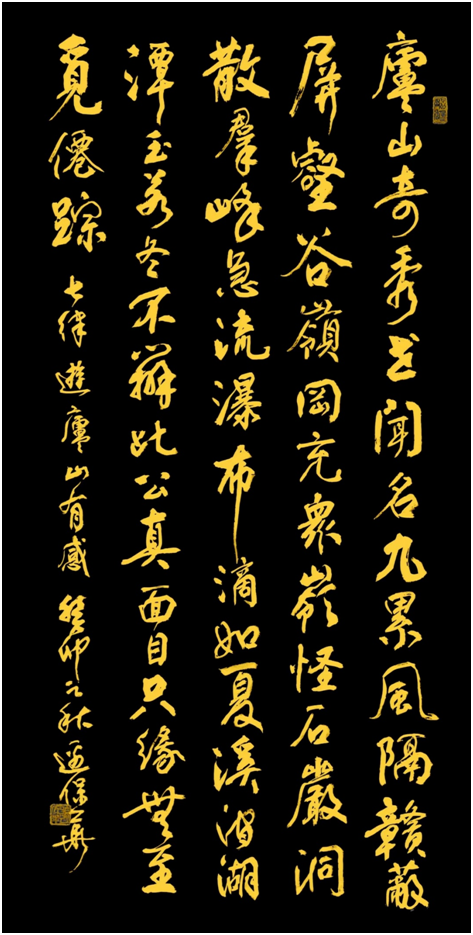 廬山奇秀聞名九累風隔贛蔽
屏壑谷嶺岡充衆嶺怪石巖洞
散羣峰急流瀑布滴如夏溪泊湖
潭玉若冬不辦此公真面目只緣無至
覓僊踪 七律 遊廬山有感 癸卯之秋 保華